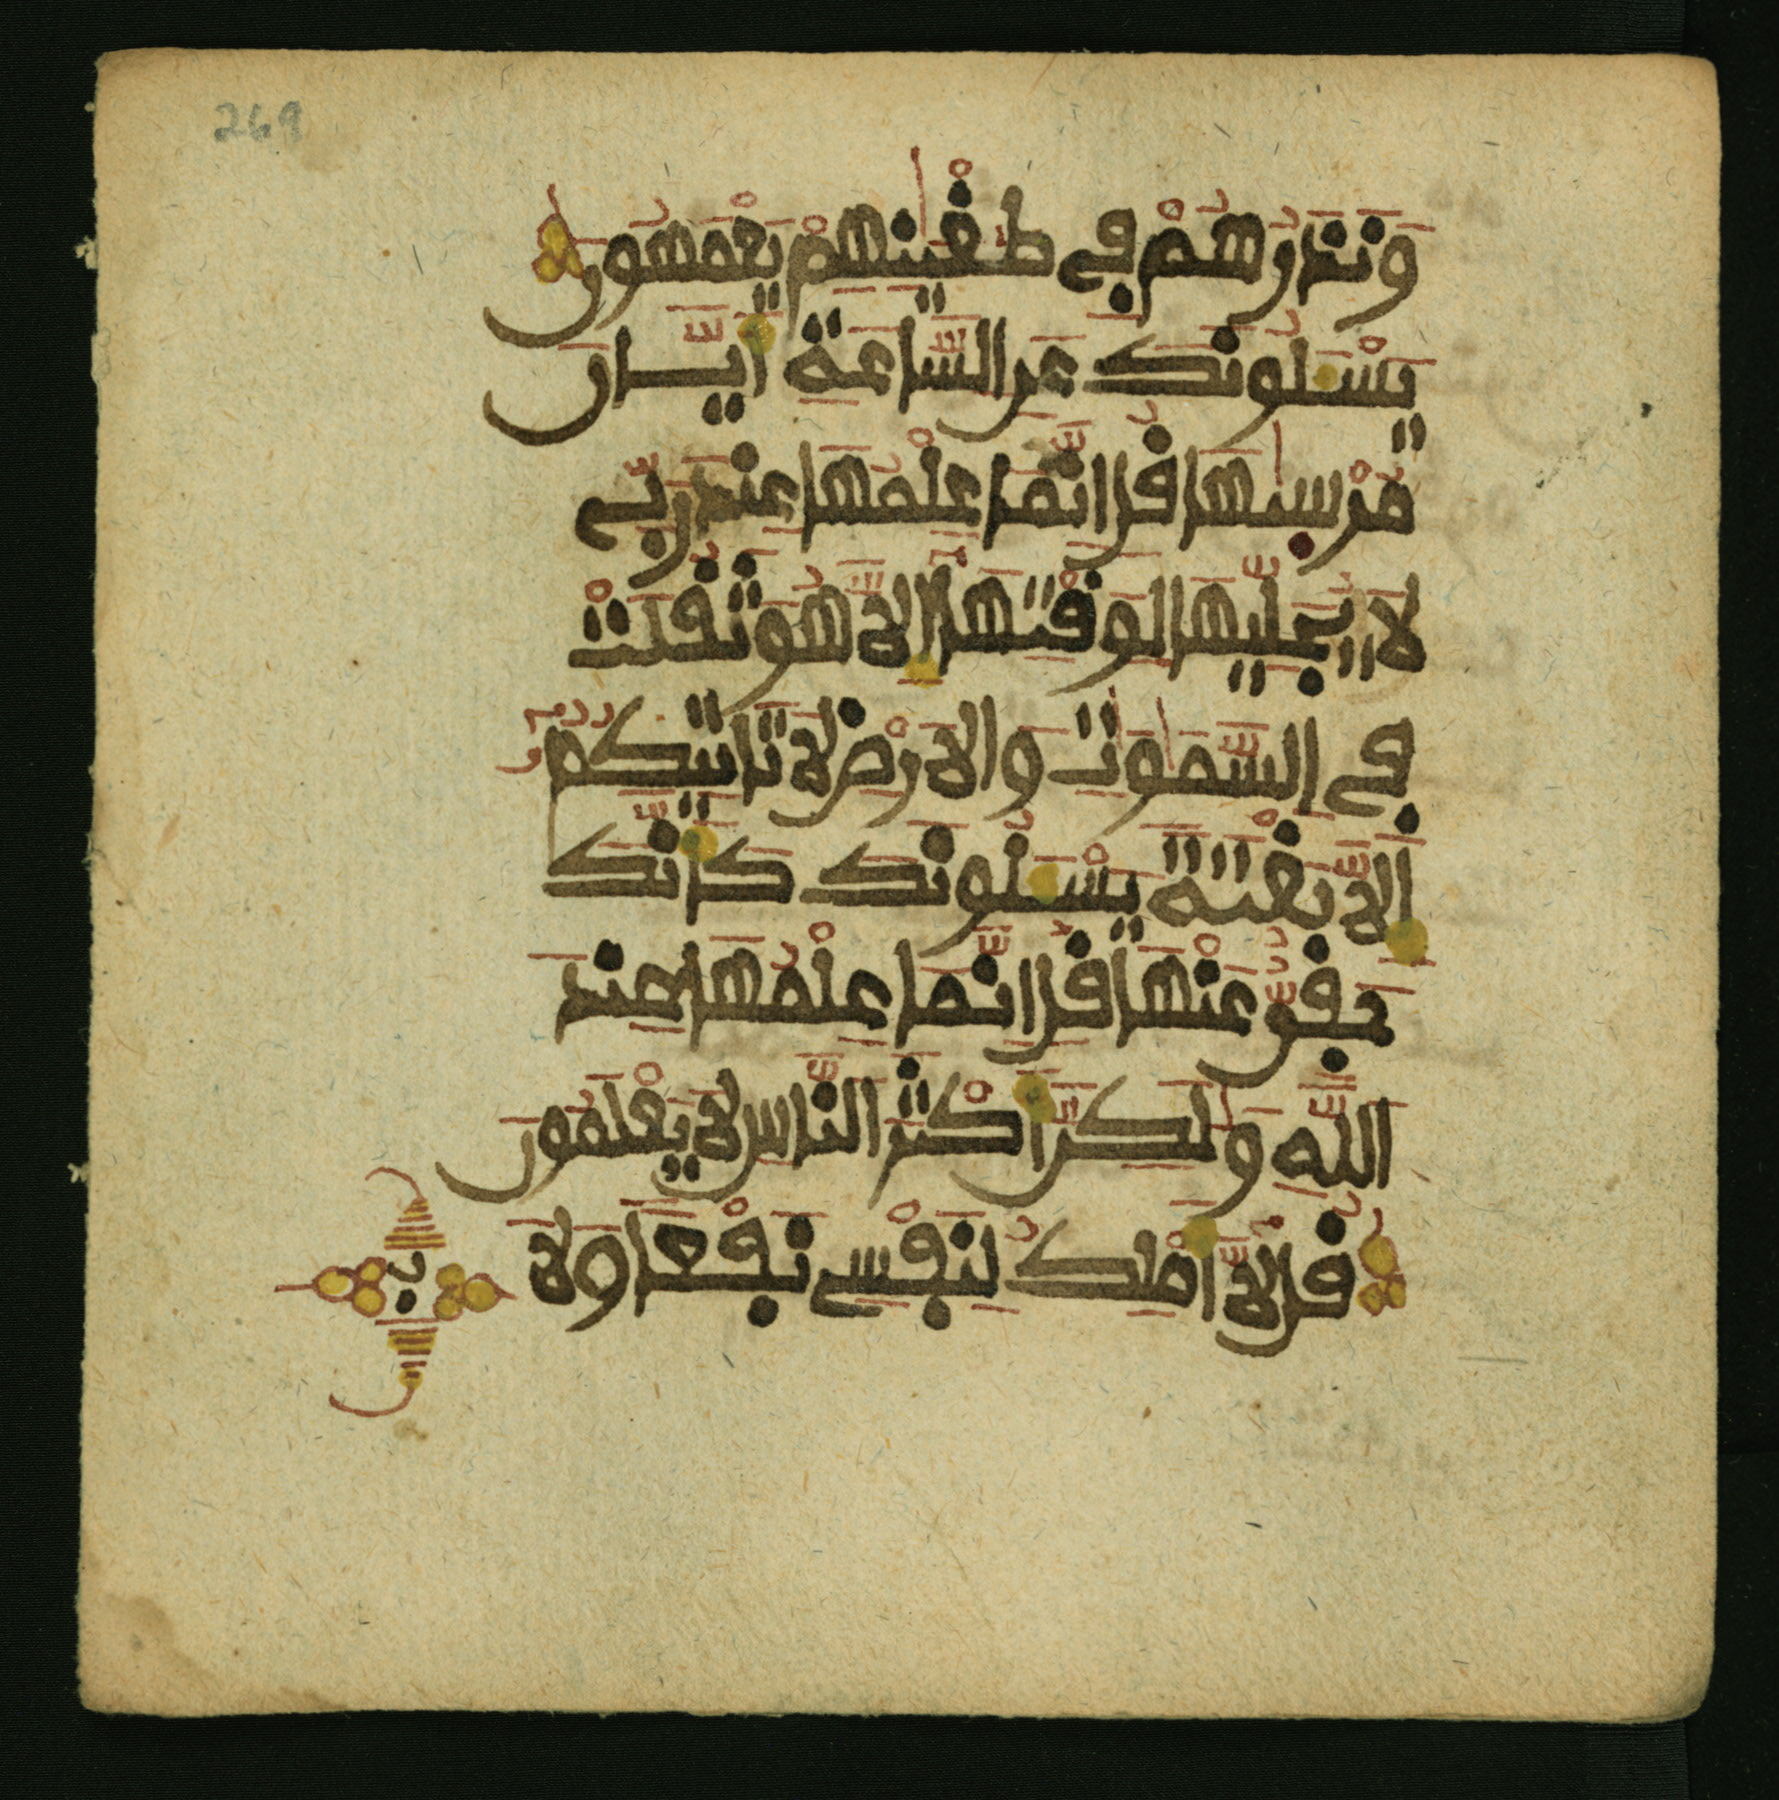 269
وَنَذَرُهُمْ فِي طُغْيَٰنِهِمْ يَعْمَهُونَ
يَسْـَٔلُونَكَ عَنِ السَّاعَةِ أَيَّانَ
مُرْسَيٰهَا قُلِ انَّمَا عِلْمُهَا عِندَ رَبِّي
لَا يُجَلِّيهَا لِوَقْتِهَا إِلَّا هُوَ ثَقُلَتْ
فِي السَّمَٰوَٰتِ وَالَارْضِ لَا تَاتِيكُمُ
إِلَّا بَغْتَةً يَسْـَٔلُونَكَ كَأَنَّكَ
حَفِيٌّ عَنْهَا قُلِ انَّمَا عِلْمُهَا عِندَ
اللَّهِ وَلَٰكِنَّ أَكْثَرَ النَّاسِ لَا يَعْلَمُونَ
قُل لَّا أَمْلِكُ لِنَفْسِي نَفْعًا وَلَا